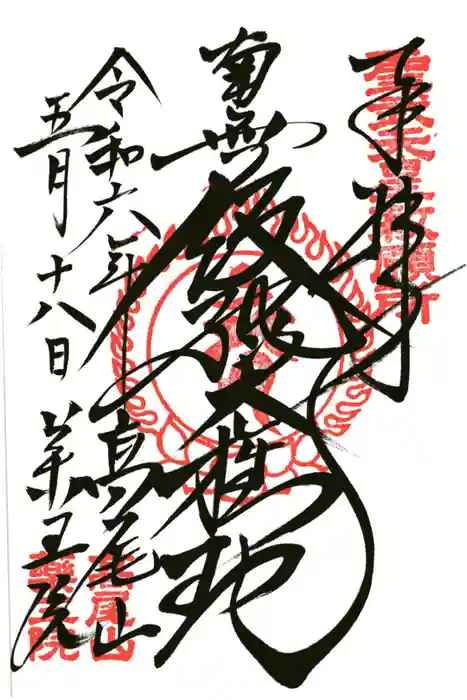 聖武天皇勅願所
奉拝
南無飯縄大権現
令和六年
五月十八日
高尾山
薬王院
高尾山
薬王院